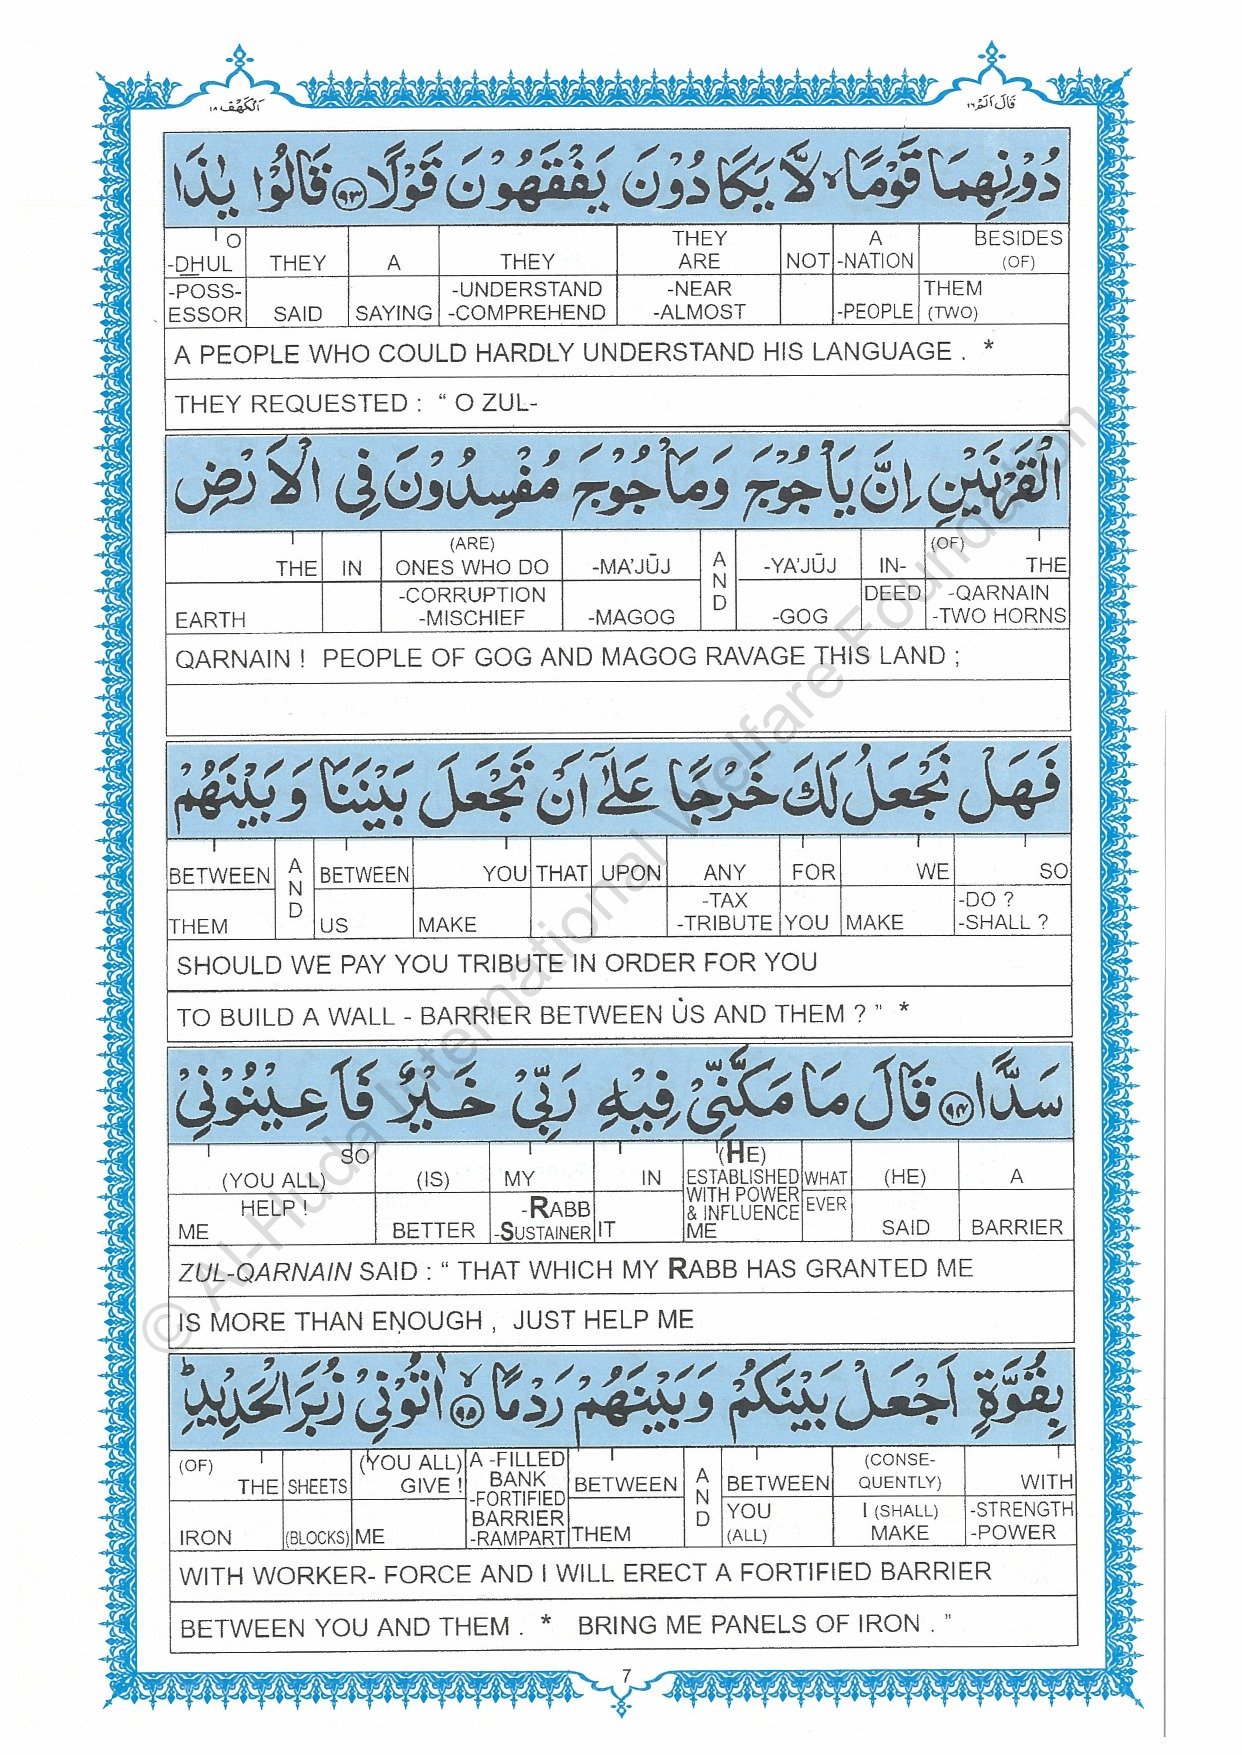 قَالَ اَلَمْ ١٦
اَلْكَهْف ١٨
دُوْنِهِمَا قَوْمًا ۙ لَّا يَكَادُوْنَ يَفْقَهُوْنَ قَوْلًا ﴿٩٣﴾ قَالُوْا يٰذَا
O -DHUL | THEY | A | THEY | THEY ARE | NOT | A -NATION | BESIDES (OF)
-POSS- ESSOR | SAID | SAYING | -UNDERSTAND -COMPREHEND | -NEAR -ALMOST | -PEOPLE | THEM (TWO)
A PEOPLE WHO COULD HARDLY UNDERSTAND HIS LANGUAGE . *
THEY REQUESTED : “ O ZUL-
الْقَرْنَيْنِ اِنَّ يَاْجُوْجَ وَمَاْجُوْجَ مُفْسِدُوْنَ فِى الْاَرْضِ
THE | IN | (ARE) ONES WHO DO | -MA’JŪJ | AND | -YA’JŪJ | IN- | (OF) THE
EARTH | -CORRUPTION -MISCHIEF | -MAGOG | -GOG | DEED | -QARNAIN -TWO HORNS
QARNAIN ! PEOPLE OF GOG AND MAGOG RAVAGE THIS LAND ;
فَهَلْ نَجْعَلُ لَكَ خَرْجًا عَلٰٓى اَنْ تَجْعَلَ بَيْنَنَا وَبَيْنَهُمْ
BETWEEN | AND | BETWEEN | YOU | THAT | UPON | ANY | FOR | WE | SO
THEM | US | MAKE | -TAX -TRIBUTE | YOU | MAKE | -DO ? -SHALL ?
SHOULD WE PAY YOU TRIBUTE IN ORDER FOR YOU
TO BUILD A WALL - BARRIER BETWEEN US AND THEM ? ” *
سَدًّا ﴿٩٤﴾ قَالَ مَا مَكَّنِّىْ فِيْهِ رَبِّىْ خَيْرٌ فَاَعِيْنُوْنِىْ
SO (YOU ALL) | (IS) | MY | IN | (HE) ESTABLISHED WITH POWER & INFLUENCE | WHAT | (HE) | A
HELP ! ME | BETTER | -RABB -SUSTAINER | IT | ME | EVER | SAID | BARRIER
ZUL-QARNAIN SAID : “ THAT WHICH MY RABB HAS GRANTED ME
IS MORE THAN ENOUGH , JUST HELP ME
بِقُوَّةٍ اَجْعَلْ بَيْنَكُمْ وَبَيْنَهُمْ رَدْمًا ﴿٩٥﴾ ۙ اٰتُوْنِىْ زُبَرَ الْحَدِيْدِ ؕ
(OF) THE | SHEETS | (YOU ALL) GIVE ! | A -FILLED BANK -FORTIFIED BARRIER -RAMPART | BETWEEN | AND | BETWEEN | (CONSE- QUENTLY) | WITH
IRON | (BLOCKS) | ME | THEM | YOU (ALL) | I (SHALL) MAKE | -STRENGTH -POWER
WITH WORKER- FORCE AND I WILL ERECT A FORTIFIED BARRIER
BETWEEN YOU AND THEM . * BRING ME PANELS OF IRON . ”
7
© Al-Huda International Welfare Foundation